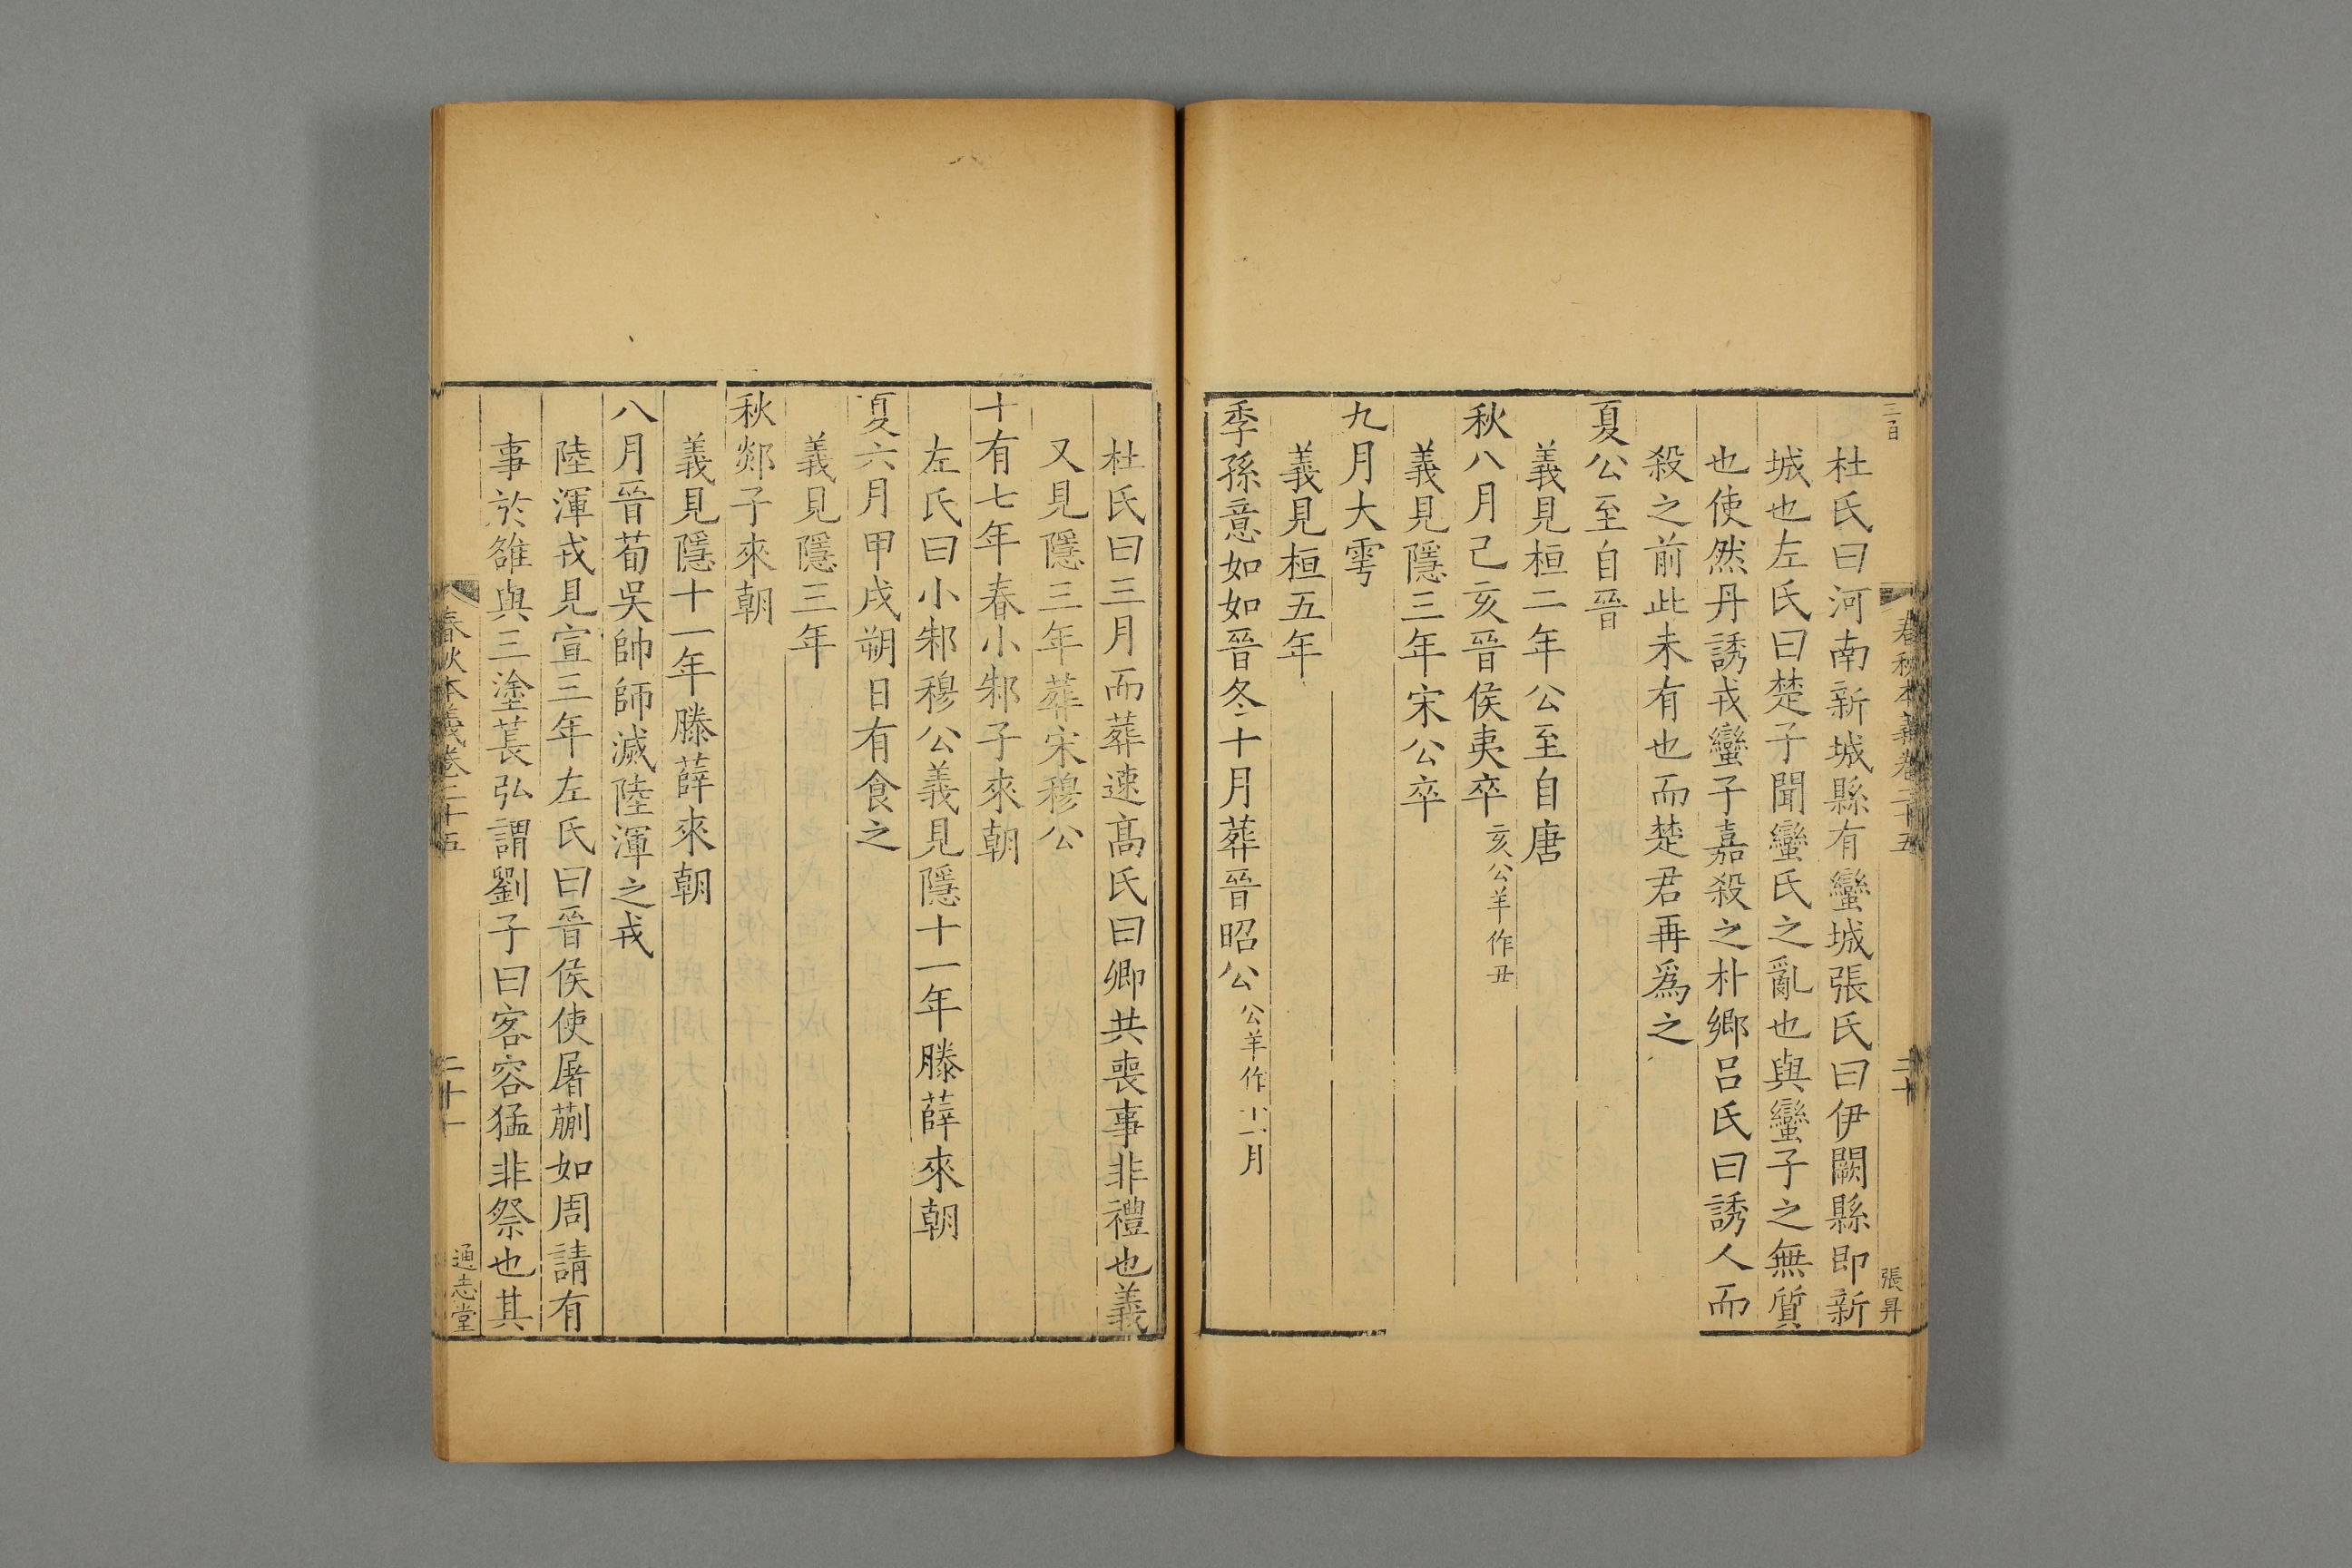 三百
春秋本義卷二十五
二十
張昇
杜氏曰河南新城縣有蠻城張氏曰伊闕縣即新
城也左氏曰楚子聞蠻氏之亂也與蠻子之無質
也使然丹誘戎蠻子嘉殺之朴鄉呂氏曰誘人而
殺之前此未有也而楚君再爲之
夏公至自晉
義見桓二年公至自唐
秋八月己亥晉侯夷卒亥公羊作丑
義見隱三年宋公卒
九月大雩
義見桓五年
季孫意如如晉冬十月葬晉昭公公羊作十一月
杜氏曰三月而葬速髙氏曰卿共喪事非禮也義
又見隱三年葬宋穆公
十有七年春小邾子來朝
左氏曰小邾穆公義見隱十一年滕薛來朝
夏六月甲戌朔日有食之
義見隱三年
秋郯子來朝
義見隱十一年滕薛來朝
八月晉荀吳帥師滅陸渾之戎
陸渾戎見宣三年左氏曰晉侯使屠蒯如周請有
事於雒與三塗萇弘謂劉子曰客容猛非祭也其
春秋本義卷二十五
二十一
通志堂